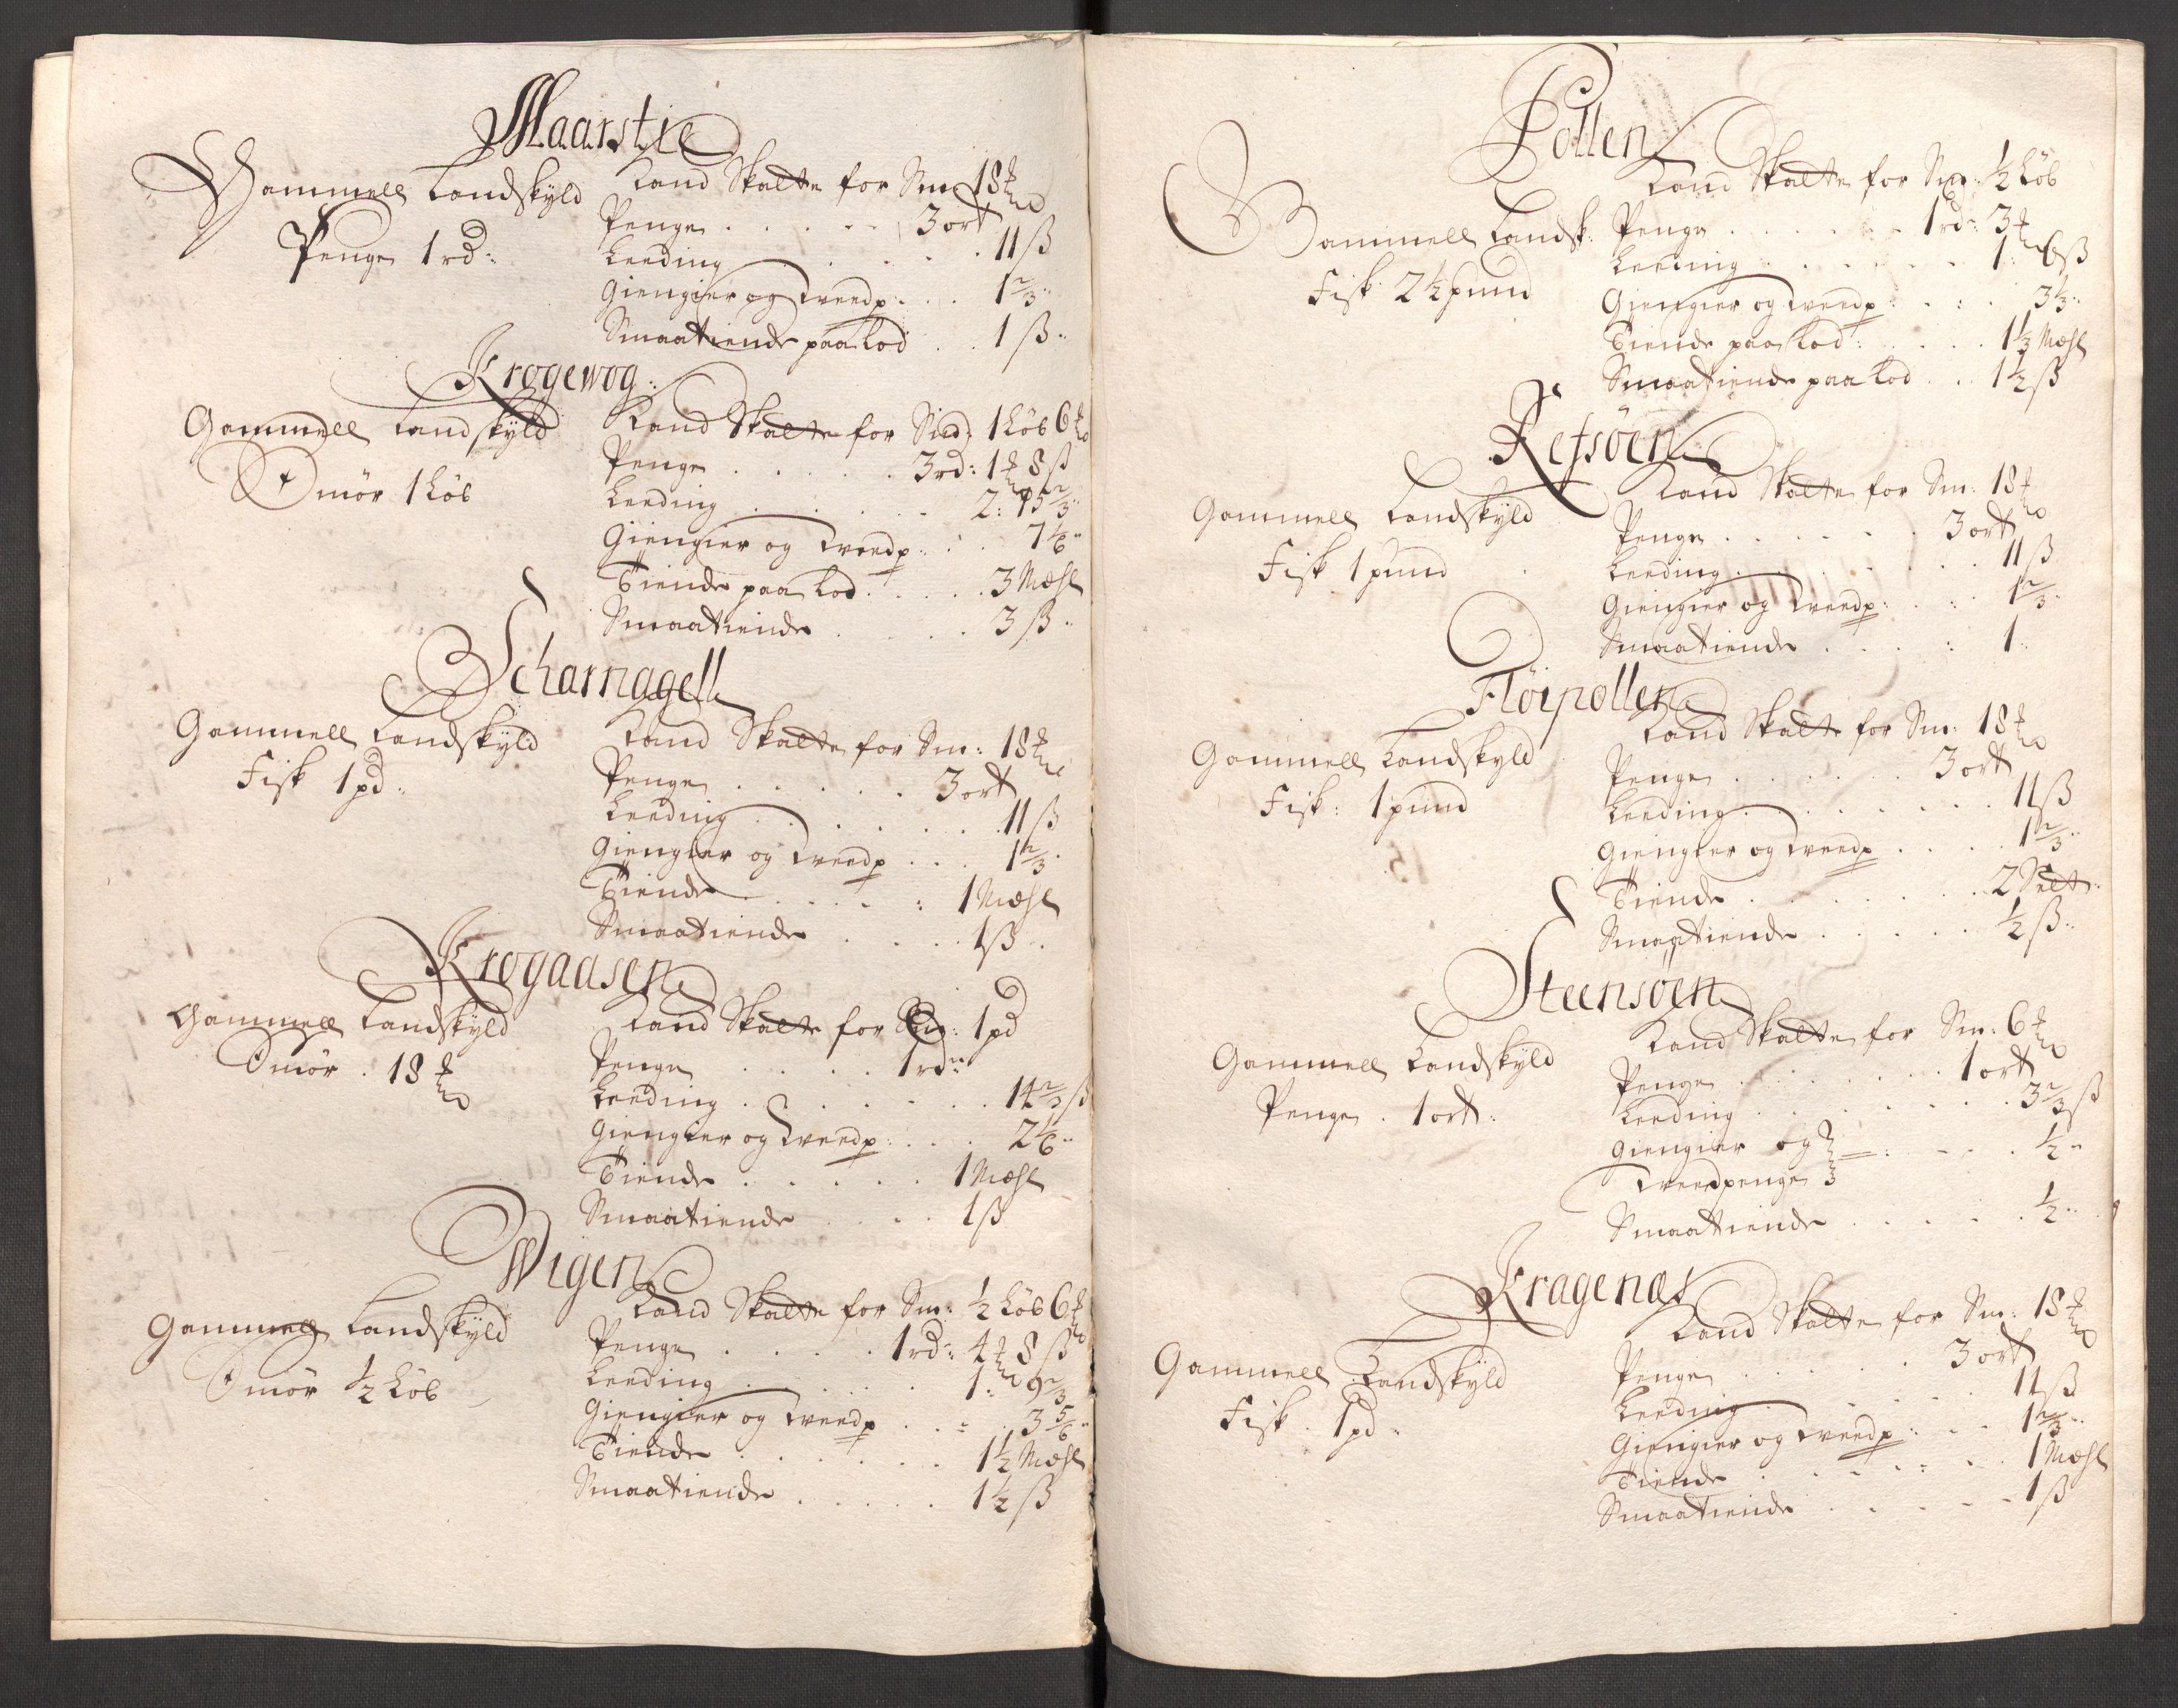 Maarstie
Gammell Landskyld
Penge 1 rd:
Land Skatte for Sm: 18 ℔
Penge . . . . . 3 ort
Leeding . . . . . 11 ß
Giengier og tveedp . . . 1 2/3 "
Smaatiende paa Lod . . 1 ß "
Krogewog:
Gammell Landskyld
Smör 1 Löb
Land Skatte for Smd: 1 Löb 6 ℔
Penge . . . . . 3 rd: 1 ℔ 8 ß
Leeding . . . . . 2: 15 2/3 "
Giengier og tveedp . . . 7 1/6 "
Tiende paa Lod . . . . . 3 Mæhl
Smaatiende . . . . . 3 ß "
Scharnagell
Gammell Landskyld
Fisk 1 pd:
Land Skatte for Sm: 18 ℔
Penge . . . . . 3 ort
Leeding . . . . . 11 ß
Giengier og tveedp . . . 1 2/3 "
Tiende . . . . : 1 Mæhl
Smaatiende . . . . 1 ß .
Krogaasen
Gammell Landskyld
Smör . 18 ℔
Land Skatte for Sm: 1 pd
Penge . . . . . 1 rd:
Leeding . . . . . . 14 2/3 ß
Giengier og tveedp . . . 2 1/6 "
Tiende . . . . . 1 Mæhl
Smaatiende . . . . 1 ß
Wigen
Gammell Landskyld
Smör 1/2 Löb
Land Skatte for Sm: 1/2 Löb 6 ℔
Penge . . . . . 1 rd: 4 ℔ 8 ß
Leeding . . . . . 1: 9 2/3
Giengier og tveedp . . . 3 5/6 "
Tiende . . . . . . 1 1/2 Mæhl
Smaatiende . . . . . 1 1/2 ß
Pollen
Gammell Landsk:
Fisk 2 1/2 pund
Land Skatte for Sm: 1/2 Löb
Penge . . . . . . 1 rd: 3 ℔
Leeding . . . . . . 1: 6 ß
Giengier og tveedp . . . 3 1/3 "
Tiende paa Lod . . . . . 1 1/3 Mæhl
Smaatiende paa Lod . . 1 1/2 ß
Refsöen
Gammell Landskyld
Fisk 1 pund
Land Skatte for Sm: 18 ℔
Penge . . . . . . 3 ort
Leeding . . . . . . 11 ß
Giengier og tveedp: . . . 1 2/3 "
Smaatiende . . . . : 1 "
Flöipollen
Gammell Landskyld
Fisk: 1 pund
Land Skatt for Sm: 18 ℔
Penge . . . . . . 3 ort
Leeding . . . . . . 11 ß
Giengier og tveedp . . . . 1 2/3 "
Tiende . . . . . . 2 Selt:
Smaatiende . . . . . 1/2 ß "
Steensöen
Gammell Landskyld
Penge . 1 ort:
Land Skatte for Sm: 6 ℔
Penge . . . . . . 1 ort
Leeding . . . . . . 3 2/3 ß
Giengier og
tveedpenge . . . . 1/2 "
Smaatiende . . . . . 1/2 "
Kragenæs
Gammell Landskyld
Fisk . 1 pd:
Land Skatte for Sm: 18 ℔
Penge . . . . . 3 ort
Leeding . . . . . . 11 ß
Giengier og tveedp: . . . 1 2/3 "
Tiende . . . . . . 1 Mæhl
Smaatiende . . . . . 1 ß